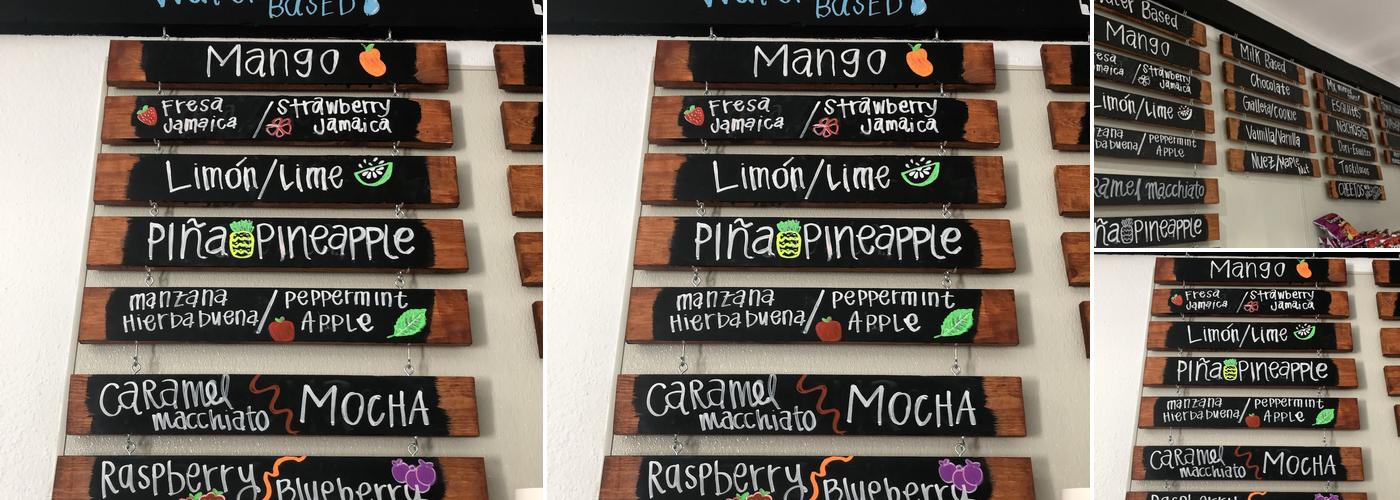 Water BASED!
Mango
Fresa / Strawberry
Jamaica Jamaica
Limón/Lime
Piña Pineapple
manzana / Peppermint
Hierba buena APPLE
CARAMEL MOCHA
macchiato
Raspberry Blueberry
Water BASED!
Mango
Fresa / Strawberry
Jamaica Jamaica
Limón/Lime
Piña Pineapple
manzana / Peppermint
Hierba buena APPLE
CARAMEL MOCHA
macchiato
Raspberry Blueberry
Water Based
Mango
Fresa / Strawberry
Jamaica Jamaica
Limón/Lime
zana / Peppermint
ba buena APPLE
Caramel macchiato
Piña Pineapple
Milk Based
Chocolate
Galleta/Cookie
Vainilla/Vanilla
Nuez/Maple Nut
Esquites
Nachos
Dori-Esquites
Tostilocos
CHEETOS
Mango
Fresa / Strawberry
Jamaica Jamaica
Limón/Lime
Piña Pineapple
manzana / Peppermint
Hierba buena APPLE
CARAMEL MOCHA
macchiato